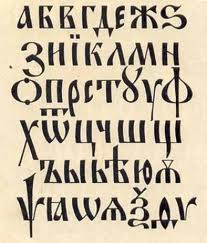 АБВГДЕЖЅ
ЗИЇКЛМН
ОПРСТꙋУФ
ХѾЦЧШЩ
ЪЫЬѢЮѦ